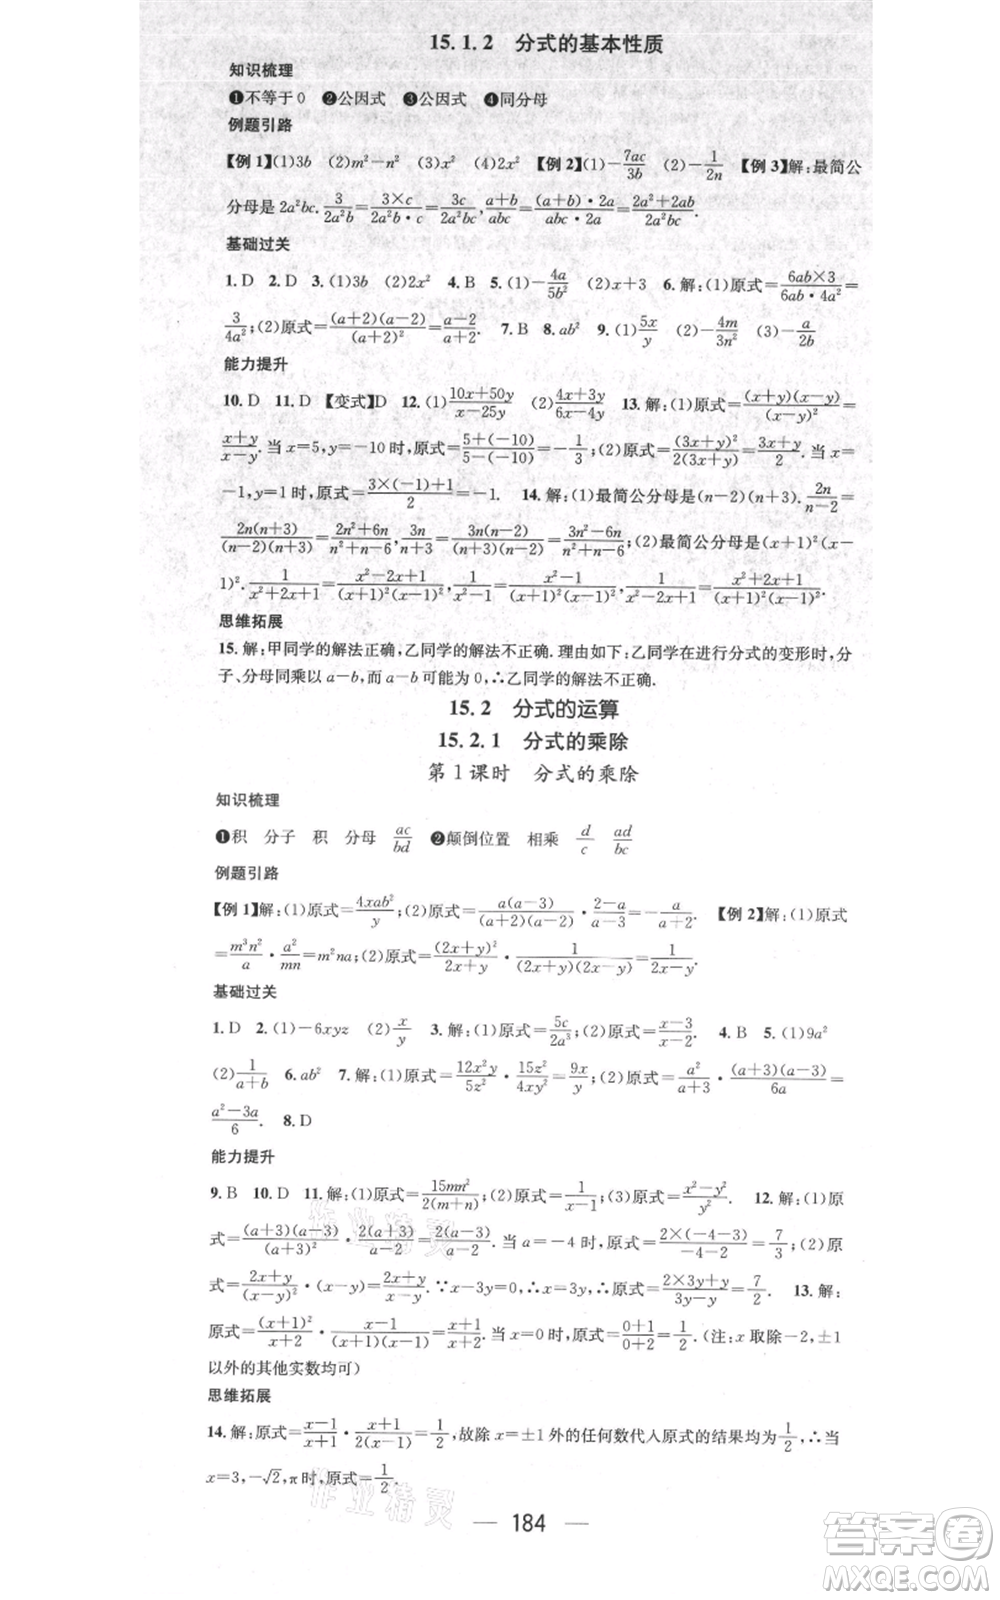 15.1.2 分式的基本性质
知识梳理
❶不等于0 ❷公因式 ❸公因式 ❹同分母
例题引路
【例1】(1)3b (2)m²-n² (3)x² (4)2x² 【例2】(1)-7ac/3b (2)-1/2n 【例3】解:最简公
分母是2a²bc. 3/2a²b=3×c/2a²b·c=3c/2a²bc, a+b/abc=(a+b)·2a/abc·2a=2a²+2ab/2a²bc.
基础过关
1. D 2. D 3. (1)3b (2)2x² 4. B 5. (1)-4a/5b² (2)x+3 6. 解:(1)原式=6ab×3/6ab·4a²=
3/4a²;(2)原式=(a+2)(a-2)/(a+2)²=a-2/a+2. 7. B 8. ab² 9. (1)5x/y (2)-4m/3n² (3)-a/2b
能力提升
10. D 11. D 【变式】D 12. (1)10x+50y/x-25y (2)4x+3y/6x-4y 13. 解:(1)原式=(x+y)(x-y)/(x-y)²=
x+y/x-y.当x=5,y=-10时,原式=5+(-10)/5-(-10)=-1/3;(2)原式=(3x+y)²/2(3x+y)=3x+y/2.当x=
-1,y=1时,原式=3×(-1)+1/2=-1. 14. 解:(1)最简公分母是(n-2)(n+3). 2n/n-2=
2n(n+3)/(n-2)(n+3)=2n²+6n/n²+n-6, 3n/n+3=3n(n-2)/(n-2)(n+3)=3n²-6n/n²+n-6;(2)最简公分母是(x+1)²(x-
1)². 1/x²+2x+1=x²-2x+1/(x+1)²(x-1)², 1/x²-1=x²-1/(x+1)²(x-1)², 1/x²-2x+1=x²+2x+1/(x+1)²(x-1)².
思维拓展
15. 解:甲同学的解法正确,乙同学的解法不正确.理由如下:乙同学在进行分式的变形时,分
子、分母同乘以a-b,而a-b可能为0,∴乙同学的解法不正确.
15.2 分式的运算
15.2.1 分式的乘除
第1课时 分式的乘除
知识梳理
❶积 分子 积 分母 ac/bd ❷颠倒位置 相乘 d/c ad/bc
例题引路
【例1】解:(1)原式=4xab²/y;(2)原式=a(a-3)/(a+2)(a-2)·2-a/a-3=-a/a+2. 【例2】解:(1)原式
=m³n²/a·a²/mn=m²na;(2)原式=(2x+y)²/2x+y·1/(2x+y)(2x-y)=1/2x-y.
基础过关
1. D 2. (1)-6xyz (2)x/y 3. 解:(1)原式=5c/2a³;(2)原式=x-3/x-2. 4. B 5. (1)9a²
(2)1/a+b 6. ab² 7. 解:(1)原式=12x²y/5z²·15z²/4xy²=9x/y;(2)原式=a²/a+3·(a+3)(a-3)/6a=
a²-3a/6. 8. D
能力提升
9. B 10. D 11. 解:(1)原式=15mn²/2(m+n);(2)原式=1/x-1;(3)原式=x²-y²/y². 12. 解:(1)原
式=(a+3)(a-3)/(a-2)²·2(a-2)/a+3=2(a-3)/a-2.当a=-4时,原式=2×(-4-3)/-4-2=7/3;(2)原
式=2x+y/(x-y)²·(x-y)=2x+y/x-y.∵x-3y=0,∴x=3y,∴原式=2×3y+y/3y-y=7/2. 13. 解:
原式=(x+1)²/x+2·x-1/(x+1)(x-1)=x+1/x+2.当x=0时,原式=0+1/0+2=1/2.(注:x取除-2,±1
以外的其他实数均可)
思维拓展
14. 解:原式=x-1/x+1·x+1/2(x-1)=1/2,故除x=±1外的任何数代入原式的结果均为1/2,∴当
x=3,-√2,π时,原式=1/2.
— 184 —
作业精灵
作业精灵
答案圈
MXQE.COM